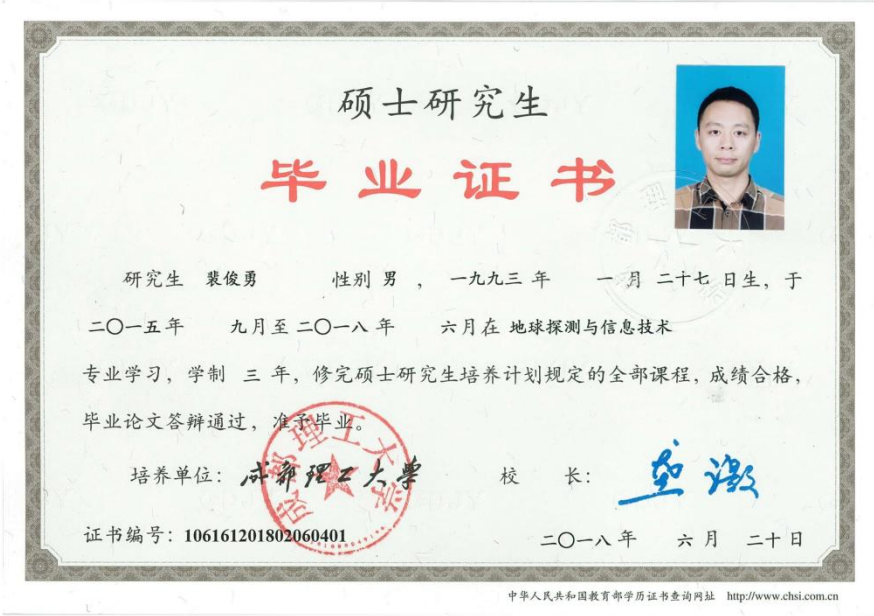 硕士研究生
毕业证书
研究生 裴俊勇 性别 男 ，一九九三 年 一 月 二十七 日生，于
二〇一五年 九月至 二〇一八 年 六月在 地球探测与信息技术
专业学习，学制 三 年，修完硕士研究生培养计划规定的全部课程，成绩合格，
毕业论文答辩通过，准予毕业。
成都理工大学
培养单位：成都理工大学 校 长：
证书编号：106161201802060401
二〇一八 年 六 月 二十 日
中华人民共和国教育部学历证书查询网址 http://www.chsi.com.cn